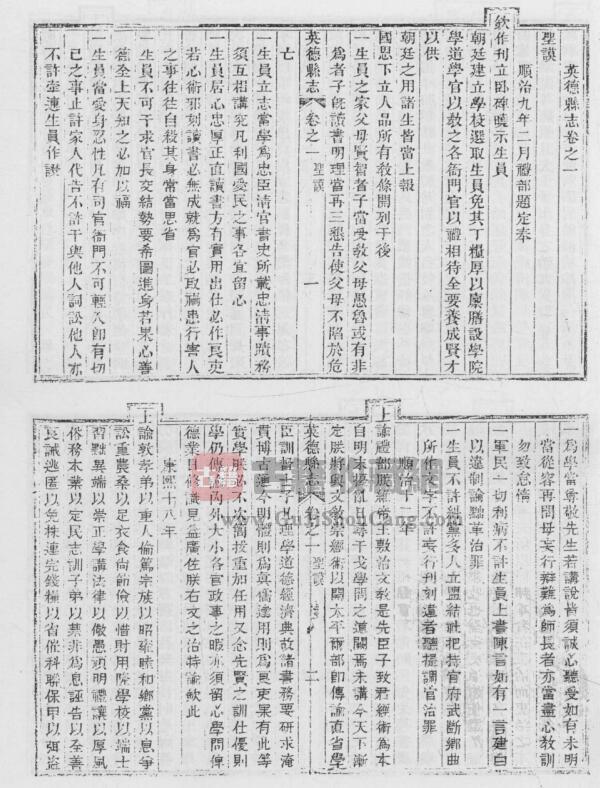 英德縣志卷之一
聖謨
順治九年二月禮部題定奉
欽依刊立卧碑曉示生員
朝廷建立學校選取生員免其丁糧厚以廩膳設學院
學道學官以教之各衙門官以禮相待全要養成賢才
以供
朝廷之用諸生皆當上報
國恩下立人品所有教條開列于後
一生員之家父母賢智者子當受教父母愚魯或有非
為者子既讀書明理當再三懇告使父母不陷於危
英德縣志 卷之一 聖謨 一
亡
一生員立志當學為忠臣清官書史所載忠清事蹟務
須互相講究凡利國愛民之事各宜留心
一生員居心忠厚正直讀書方有實用出仕必作良吏
若心術邪刻讀書必無成就為官必取禍患行害人
之事往往自殺其身常當思省
一生員不可干求官長交結勢要希圖進身若果心善
德全上天知之必加以福
一生員當愛身忍性凡有司官衙門不可輕入即有切
己之事止許家人代告不許干與他人詞訟他人亦
不許牽連生員作證
一為學當尊敬先生若講說皆須誠心聽受如有未明
當從容再問毋妄行辯難為師長者亦當盡心教訓
勿致怠惰
一軍民一切利病不許生員上書陳言如有一言建白
以違制論黜革治罪
一生員不許糾黨多人立盟結社把持官府武斷鄉曲
所作文字不許妄行刊刻違者聽提調官治罪
順治十一年
上諭禮部朕惟帝王敷治文教是先臣子致君經術為本
自明末擾亂日尋干戈學問之道闕焉未講今天下漸
定朕將興文教崇經術以開太平爾部即傳諭直省學
英德縣志 卷之一 聖謨 二
臣訓督士子凡理學道德經濟典故諸書務要研求淹
貫博古通今明體則為真儒達用則為良吏果有此等
實學朕必不次簡拔重加任用又念先賢之訓仕優則
學仍傳諭內外大小各官政事之暇亦須留心學問俾
德業日修識見益廣佐朕右文之治特諭欽此
康熙十八年
上諭敦孝弟以重人倫篤宗族以昭雍睦和鄉黨以息爭
訟重農桑以足衣食尚節儉以惜財用隆學校以端士
習黜異端以崇正學講法律以儆愚頑明禮讓以厚風
俗務本業以定民志訓子弟以禁非為息誣告以全善
良誡逃匿以免株連完錢糧以省催科聯保甲以弭盜
www.GuJiShuCang.com